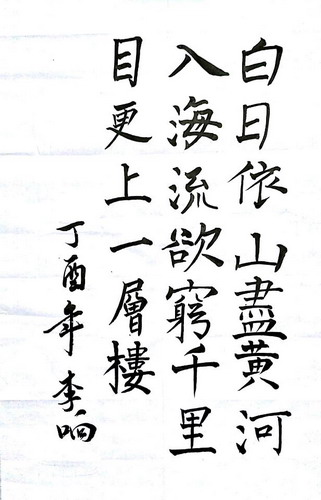 白日依山盡黄河
入海流欲窮千里
目更上一層樓
丁酉年李响